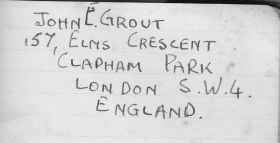 JOHN E. GROUT
157, ELMS CRESCENT
CLAPHAM PARK
LONDON S.W.4.
ENGLAND.